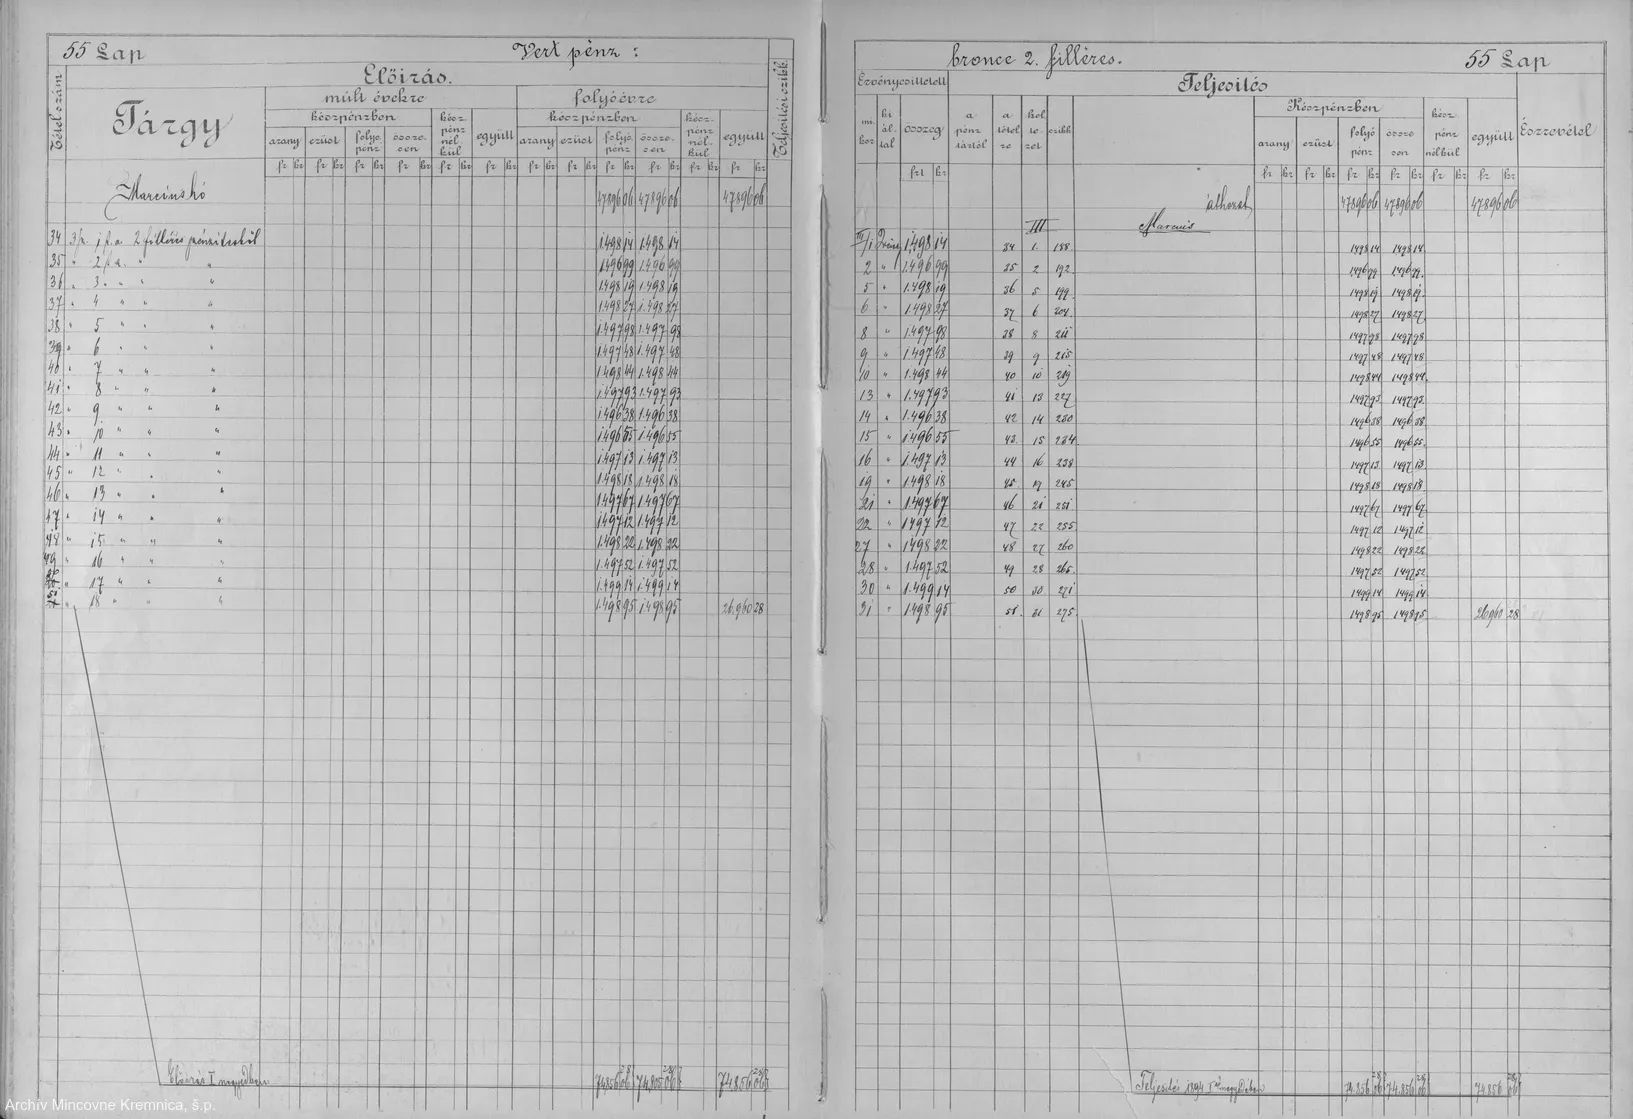 55 Lap Vert pénz :
Tétel szám
Előirás.
Teljesitési czikk.
Tárgy
múlt évekre folyóévre
készpénzben kész pénz nél kül együtt készpénzben kész pénz nél kül együtt
arany ezüst folyó pénz össze sen arany ezüst folyó pénz össze sen
fr kr fr kr fr kr fr kr fr kr fr kr fr kr fr kr fr kr fr kr fr kr fr kr
Marcius hó 47896 06 47896 06 47896 06
34 1 2 filléres 1.498 14 1.498 14
35 " 2 " " 1496 99 1.496 99
36 " 3 " " " 1.498 19 1.498 19
37 " 4 " " " 1.498 27 1.498 27
38 " 5 " " " 1.497 98 1.497 98
39 " 6 " " " 1.497 48 1.497 48
40 " 7 " " " 1.498 44 1.498 44
41 " 8 " " " 1.497 93 1.497 93
42 " 9 " " " 1.496 38 1.496 38
43 " 10 " " " 1.496 55 1.496 55
44 " 11 " " " 1.497 13 1.497 13
45 " 12 " " " 1.498 18 1.498 18
46 " 13 " " " 1.497 67 1.497 67
47 " 14 " " " 1.497 12 1.497 12
48 " 15 " " " 1.498 22 1.498 22
49 " 16 " " " 1.497 52 1.497 52
" 17 " " " 1.499 14 1.499 14
" 18 " " " 1.498 95 1.498 95 26.960 28
Előirás I negyedben 74.856 74.856
bronce 2. filléres. 55 Lap
Érvényesittetett Teljesités
mi kor ki ál tal összeg a pénz tártól a tétel re kel te zet czikk Készpénzben kész pénz nélkül együtt Észrevétel
arany ezüst folyó pénz össze sen
frt kr fr kr fr kr fr kr fr kr fr kr fr kr
áthozat 47896 06 47896 06 47896 06
III Marcius
III/1 1.498 14 34 1. 188 1498 14 1498 14
2 " 1.496 99 35 2 192 1496 99 1496 99
5 " 1.498 19 36 5 199 1498 19 1498 19
6 " 1.498 27 37 6 204 1498 27 1498 27
8 " 1.497 98 38 8 211 1497 98 1497 98
9 " 1497 48 39 9 215 1497 48 1497 48
10 " 1.498 44 40 10 219 1498 44 1498 44
13 " 1.497 93 41 13 227 1497 93 1497 93
14 " 1.496 38 42 14 230 1496 38 1496 38
15 " 1496 55 43 15 234 1496 55 1496 55
16 " 1.497 13 44 16 238 1497 13 1497 13
19 " 1.498 18 45 19 245 1498 18 1498 18
21 " 1.497 67 46 21 251 1497 67 1497 67
22 " 1497 12 47 22 255 1497 12 1497 12
27 " 1498 22 48 27 260 1498 22 1498 22
28 " 1.497 52 49 28 265 1497 52 1497 52
30 " 1.499 14 50 30 271 1499 14 1499 14
31 " 1498 95 51 31 275 1498 95 1498 95 26960 28
Teljesités 1894 74.856 74.856 74856
Archív Mincovne Kremnica, š.p.